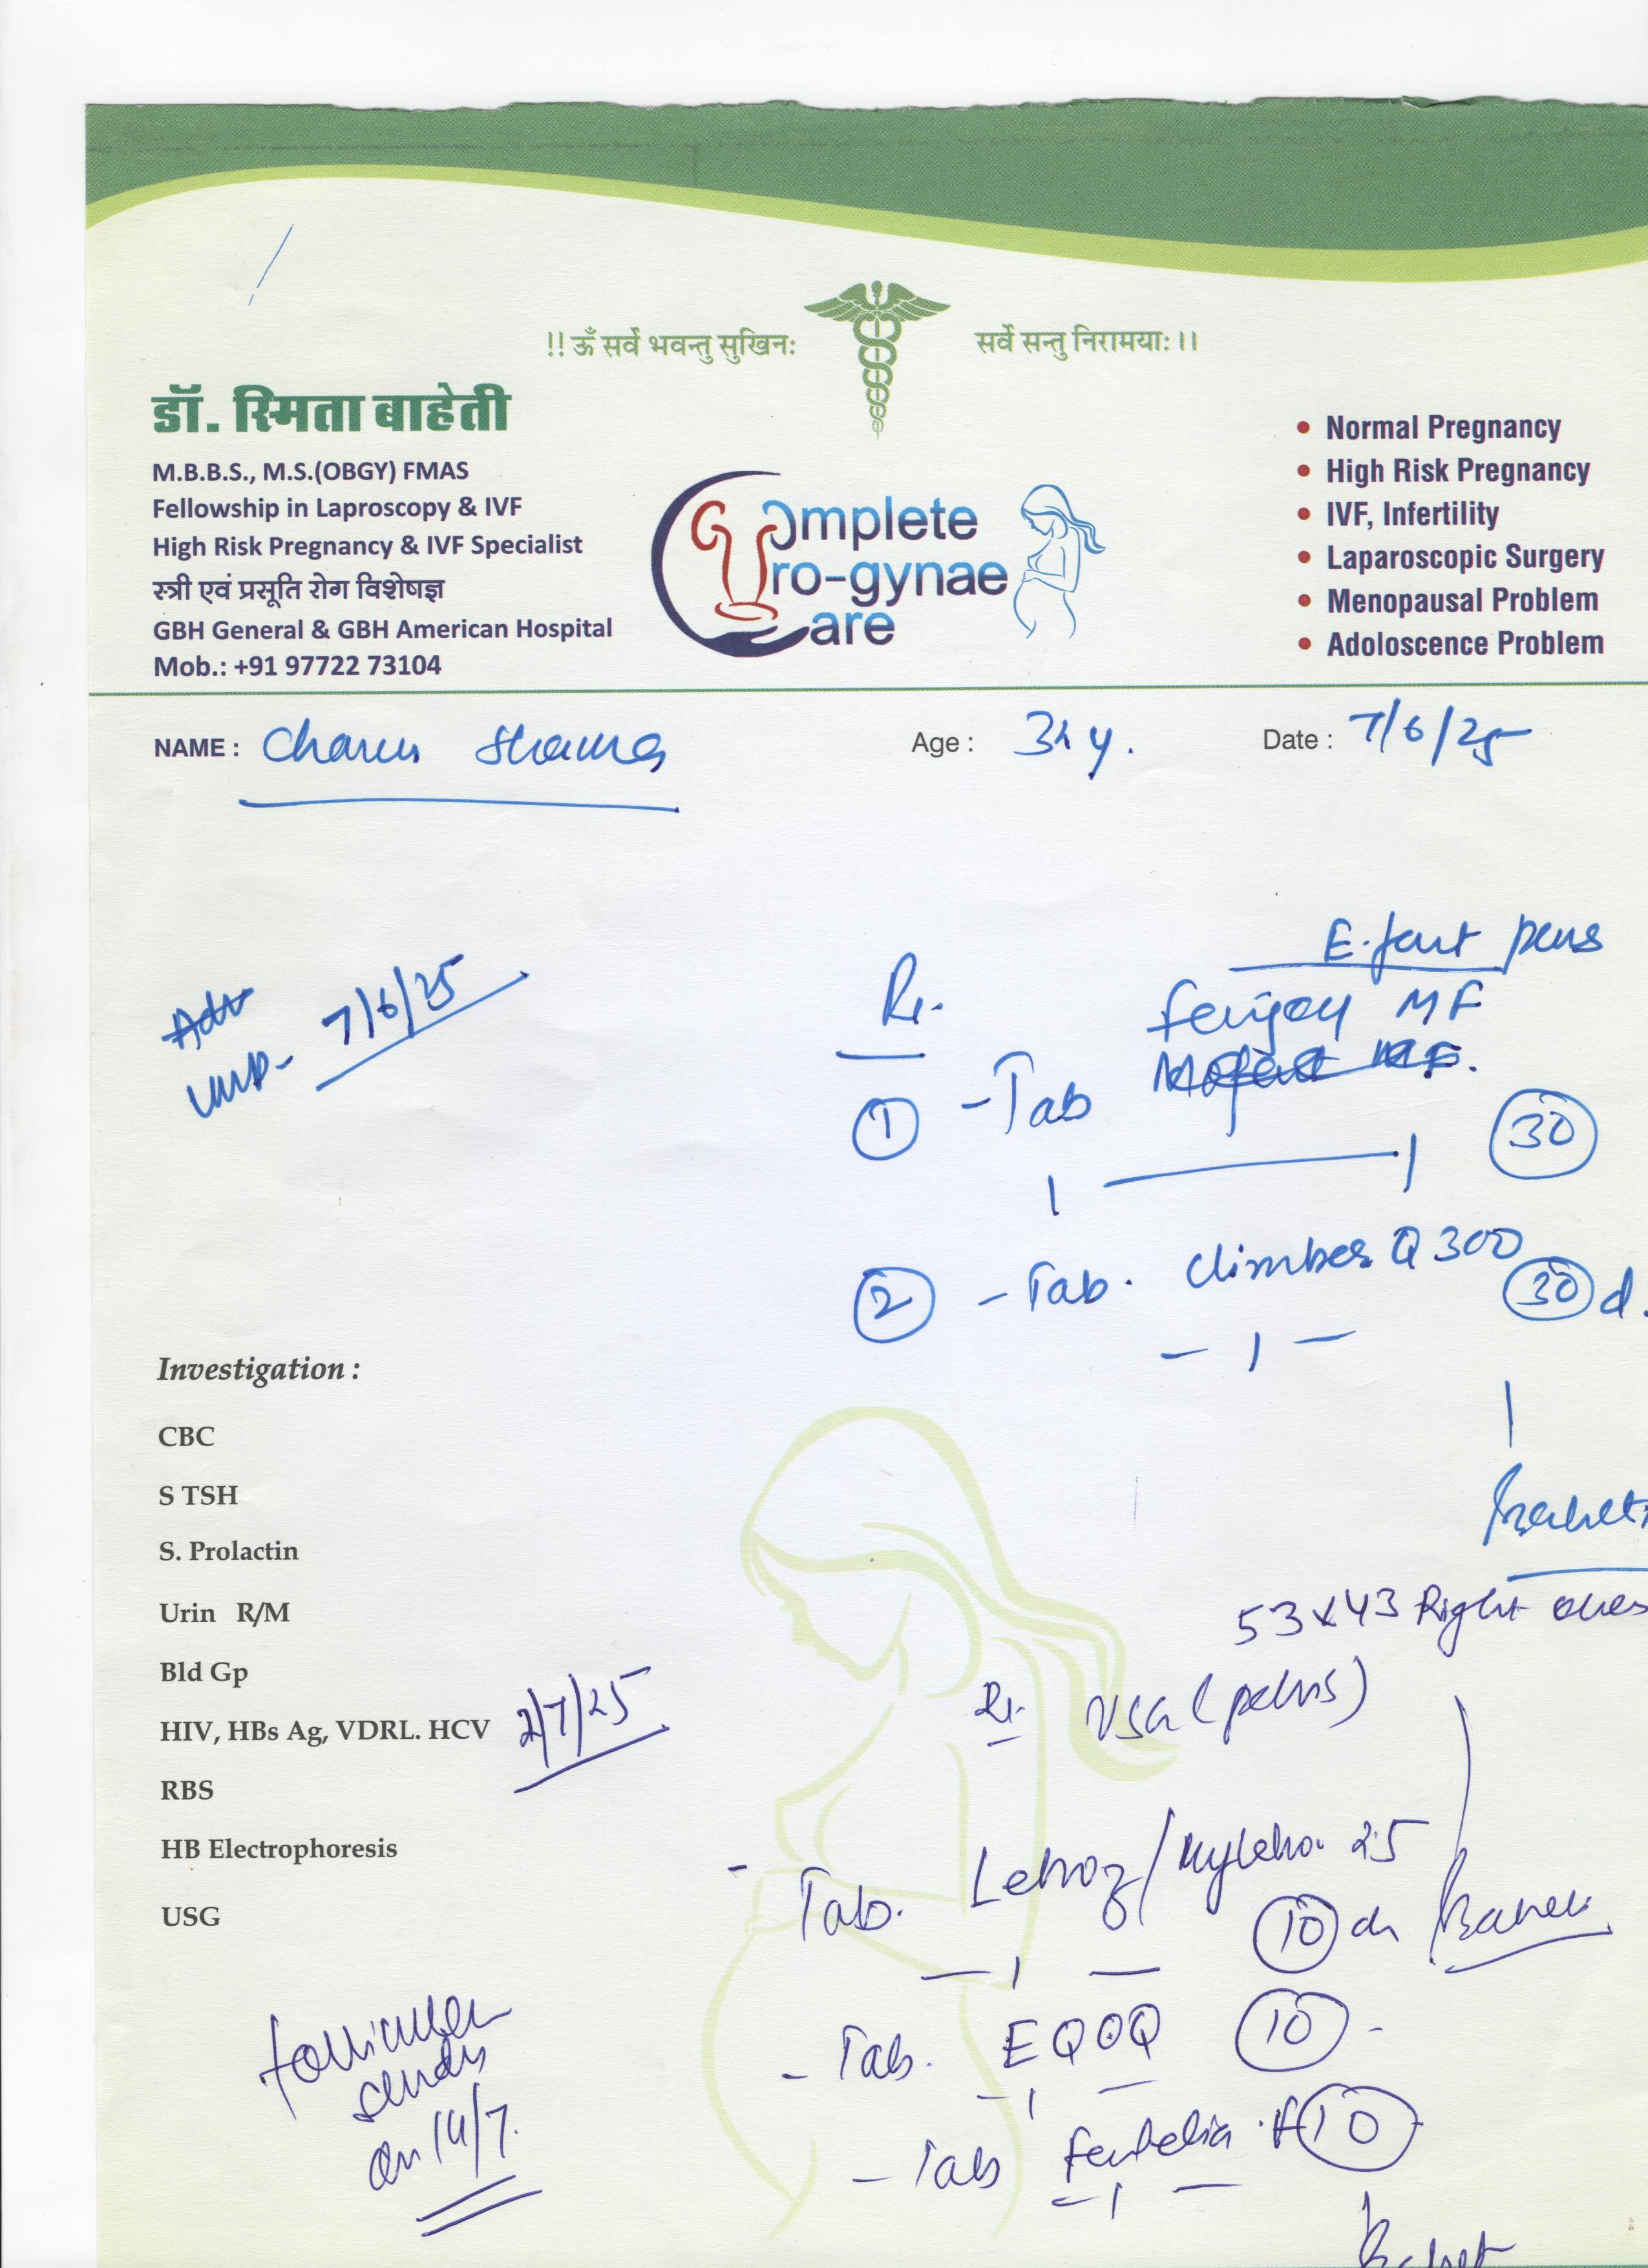 !! ॐ सर्वे भवन्तु सुखिनः सर्वे सन्तु निरामयाः।।
डॉ. स्मिता बाहेती
M.B.B.S., M.S.(OBGY) FMAS
Fellowship in Laproscopy & IVF
High Risk Pregnancy & IVF Specialist
स्त्री एवं प्रसूति रोग विशेषज्ञ
GBH General & GBH American Hospital
Mob.: +91 97722 73104
Complete
Uro-gynae
Care
• Normal Pregnancy
• High Risk Pregnancy
• IVF, Infertility
• Laparoscopic Surgery
• Menopausal Problem
• Adoloscence Problem
NAME : Sharma Age : y. Date : 7/6/25
Adv
LMP- 7/6/25
Rx.
MF
1 - Tab
1 — 1 30
2 - Tab. Q 300
30 d.
— 1 —
Investigation :
CBC
S TSH
S. Prolactin
Urin R/M
Bld Gp
HIV, HBs Ag, VDRL. HCV
RBS
HB Electrophoresis
USG
2/7/25
53x43 Right
Rx. USG (pelvis)
- Tab. Letroz/ 2.5
10
— 1 —
- Tab. EQOQ 10 -
— 1 —
- Tab 10
— 1 —
follicular
study
on 14/7.